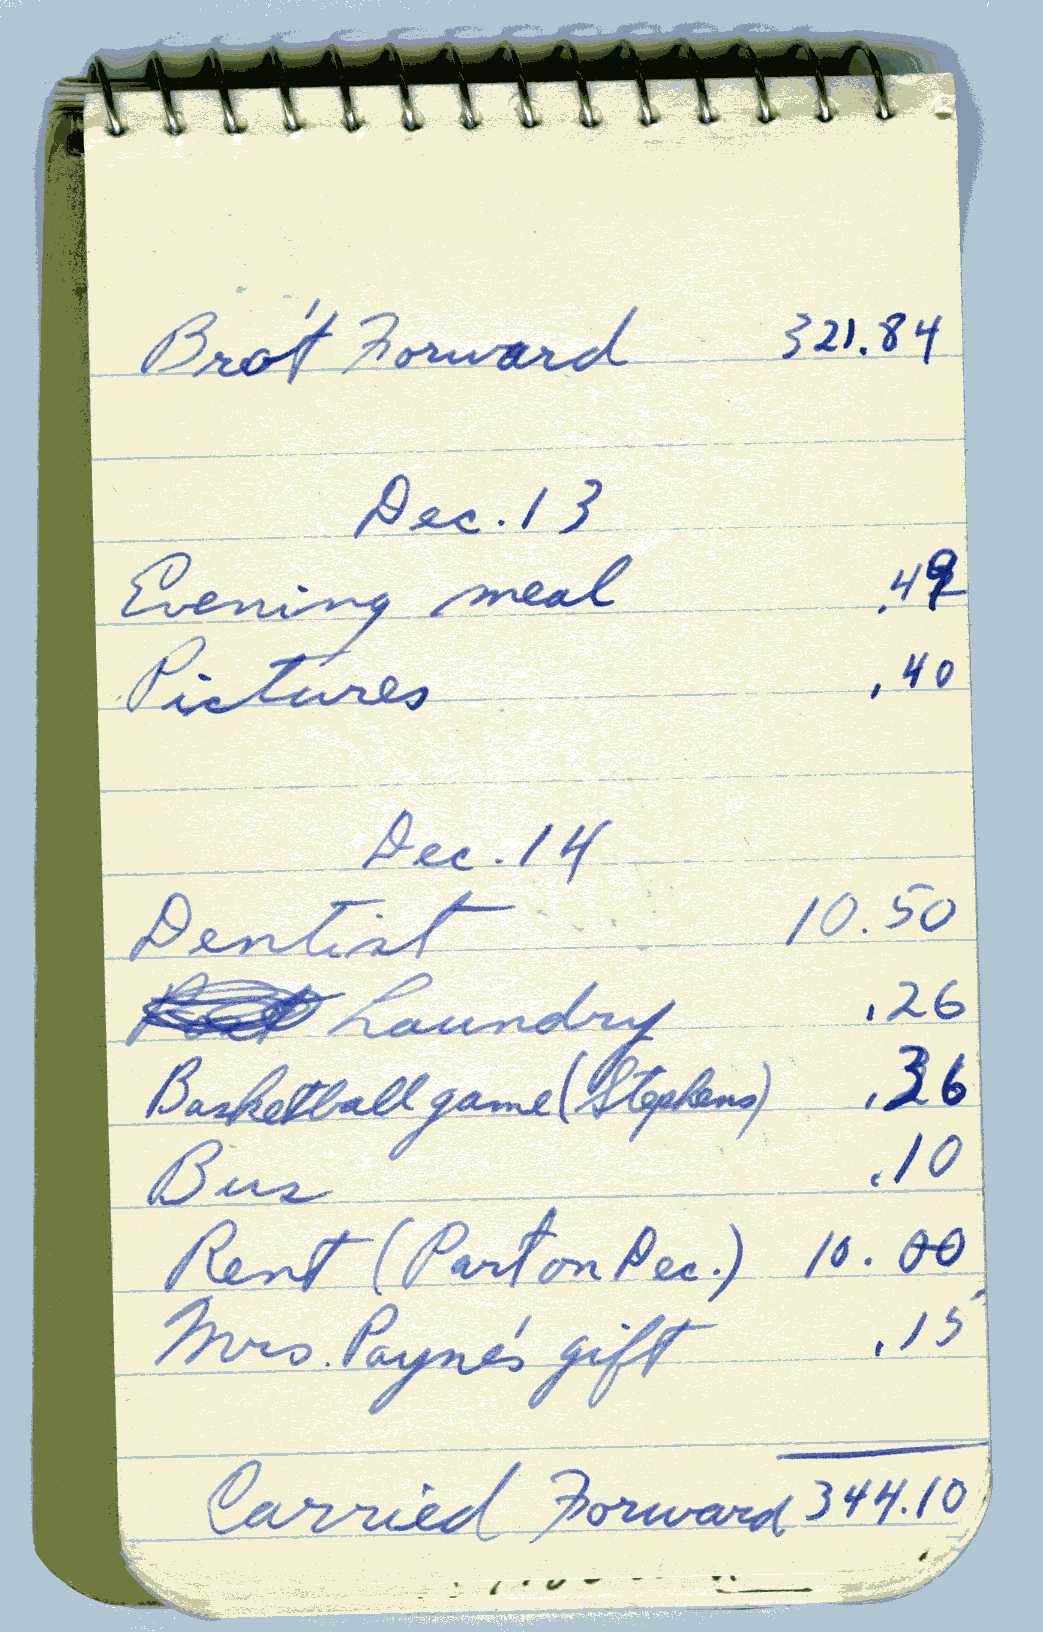 Bro't Forward 321.84
Dec. 13
Evening meal .49
Pictures .40
Dec. 14
Dentist 10.50
Laundry .26
Basketball game (Stephens) .36
Bus .10
Rent (Part on Dec.) 10.00
Mrs. Payne's gift .15
Carried Forward 344.10